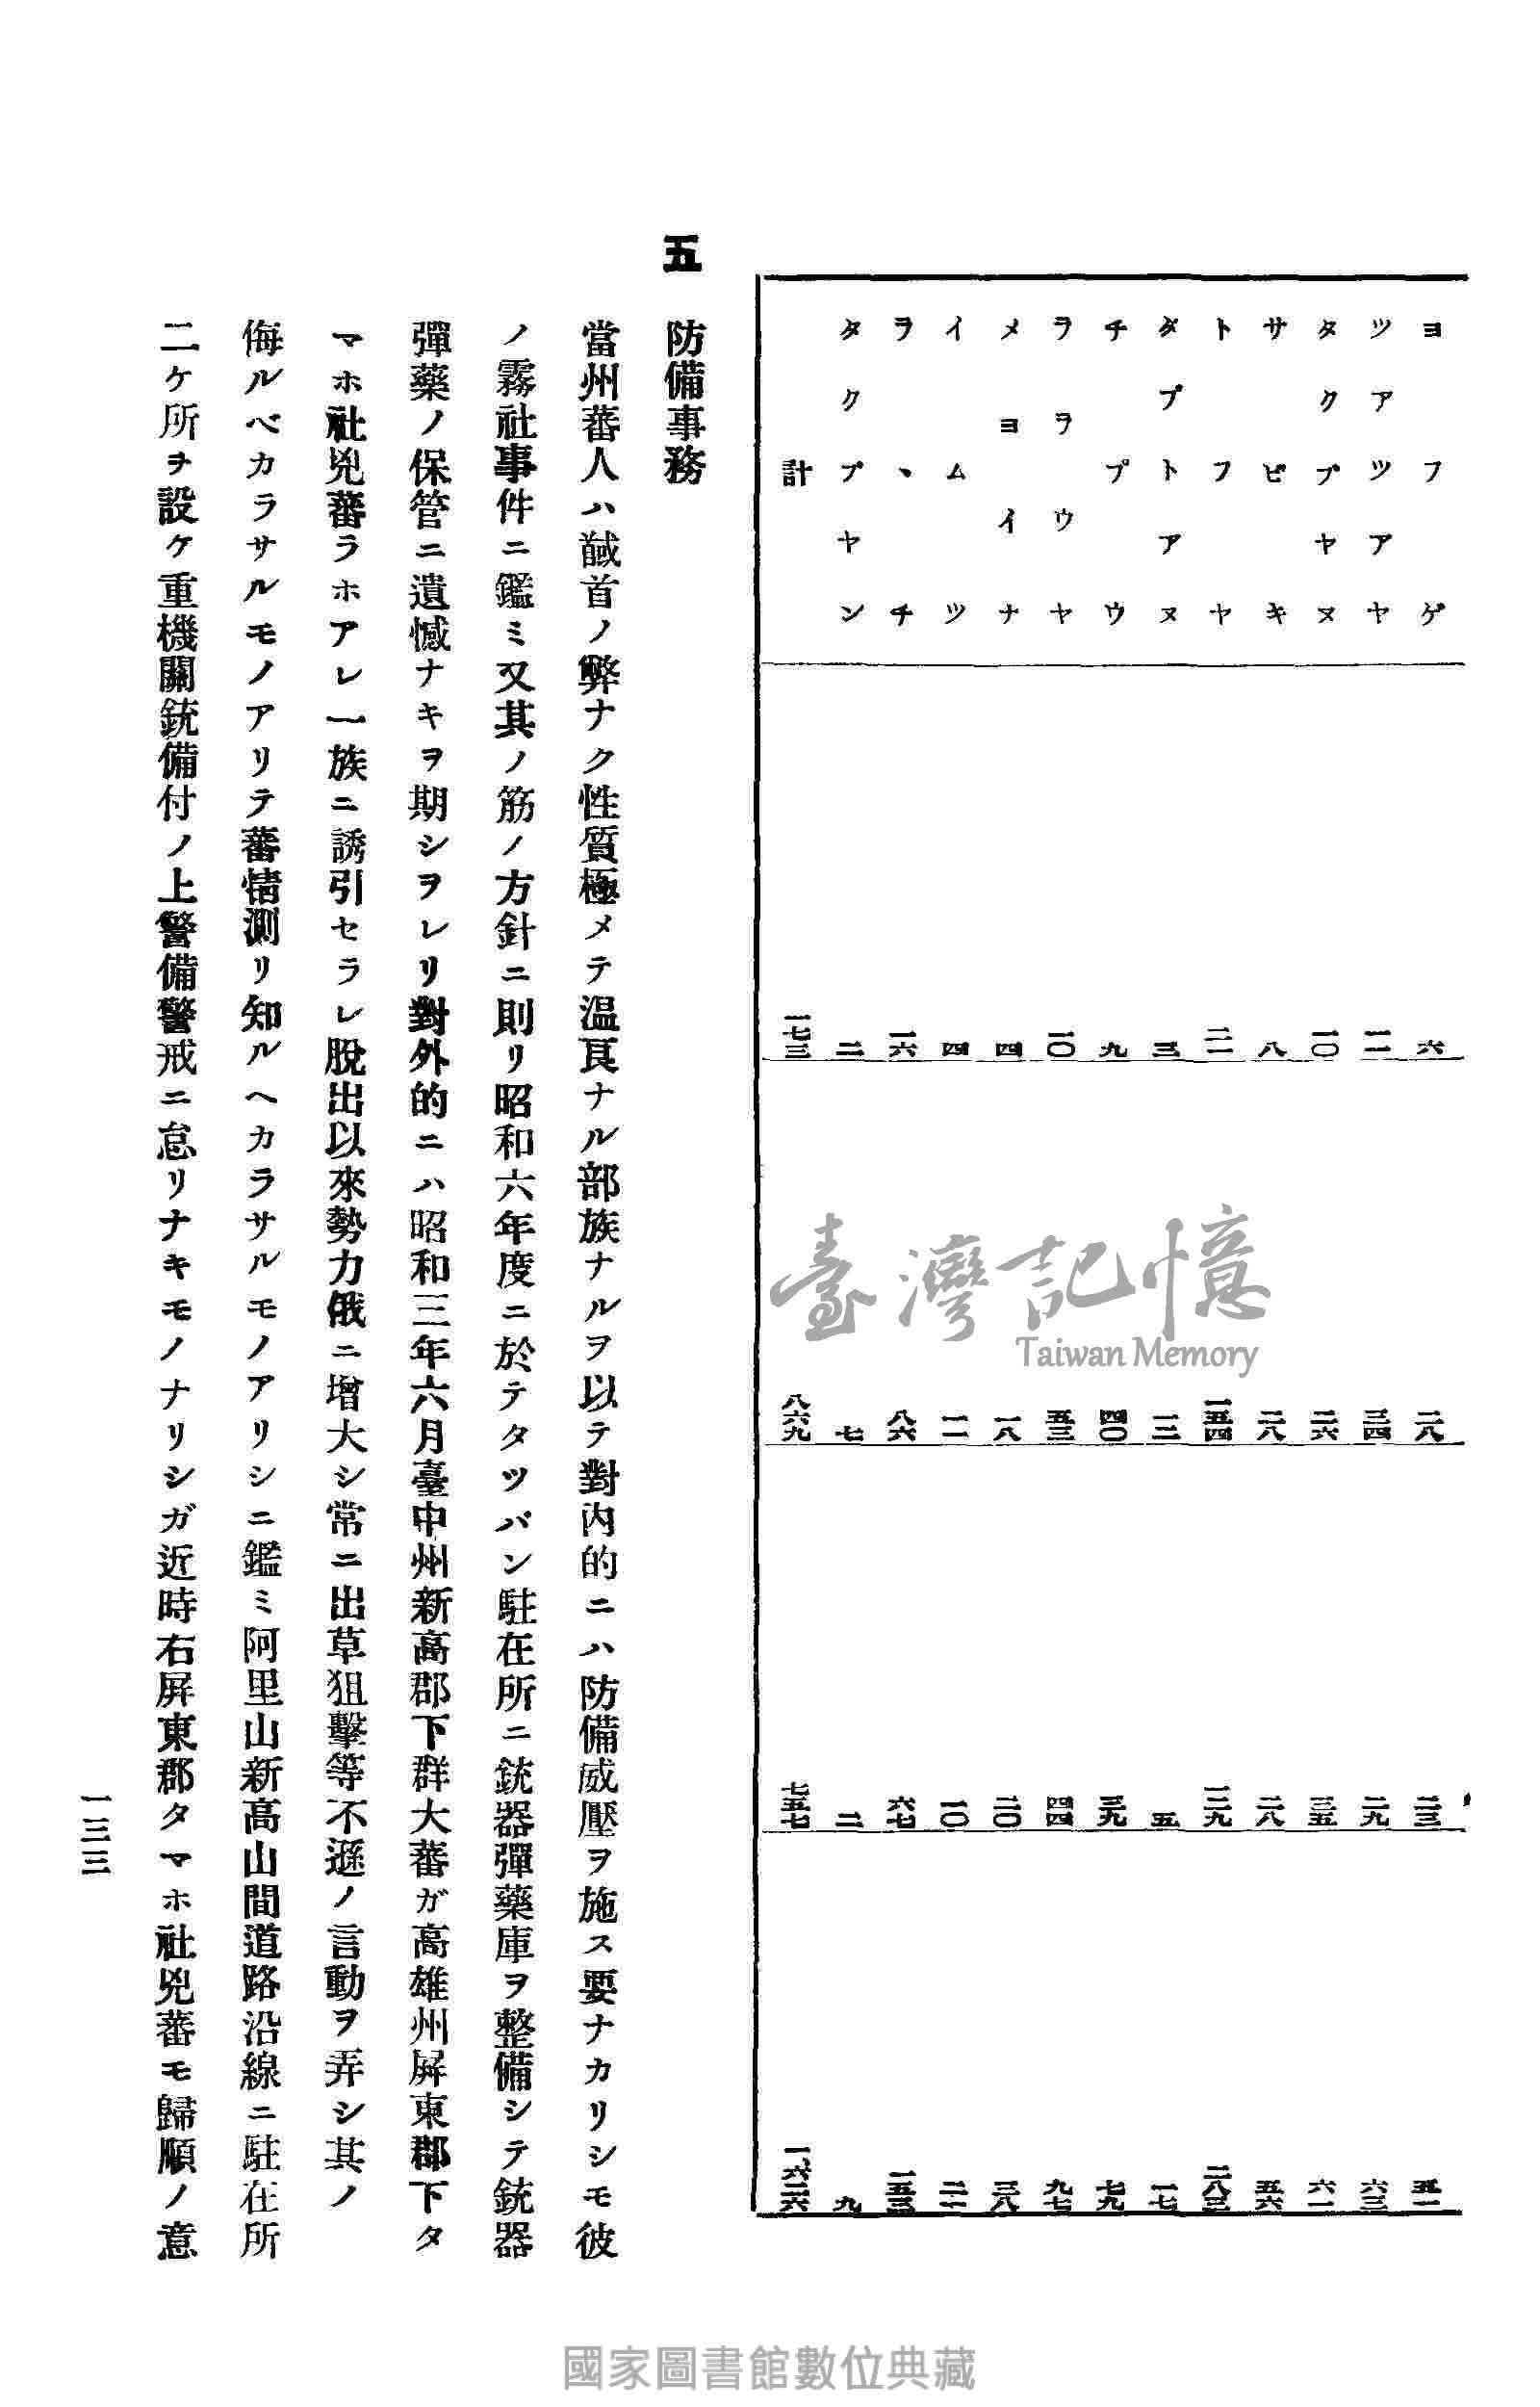 ヨフゲ 六 二八 二三 五一
ツアツアヤ 一一 三四 二九 六三
タクプヤヌ 一〇 二六 三五 六一
サビキ 八 二八 二八 五六
トフヤ 二一 一五四 一二九 二八三
ダプトアヌ 三 一二 五 一七
チプウ 九 四〇 三九 七九
ララウヤ 一〇 五三 四四 九七
メヨイナ 四 一八 二〇 三八
イムツ 四 一一 一〇 二一
ヲヽチ 一六 八六 六七 一五三
タクプヤン 二 七 二 九
計 一七三 八六九 七五七 一、六二六
五 防備事務
當州蕃人ハ馘首ノ弊ナク性質極メテ温良ナル部族ナルヲ以テ對内的ニハ防備威壓ヲ施ス要ナカリシモ彼
ノ霧社事件ニ鑑ミ又其ノ筋ノ方針ニ則リ昭和六年度ニ於テタツバン駐在所ニ銃器彈藥庫ヲ整備シテ銃器
彈藥ノ保管ニ遺憾ナキヲ期シヲレリ對外的ニハ昭和三年六月臺中州新高郡下群大蕃ガ高雄州屏東郡下タ
マホ社兇蕃ラホアレ一族ニ誘引セラレ脫出以來勢力俄ニ增大シ常ニ出草狙擊等不遜ノ言動ヲ弄シ其ノ
侮ルベカラサルモノアリテ蕃情測リ知ルヘカラサルモノアリシニ鑑ミ阿里山新高山間道路沿線ニ駐在所
二ケ所ヲ設ケ重機關銃備付ノ上警備警戒ニ怠リナキモノナリシガ近時右屏東郡タマホ社兇蕃モ歸順ノ意
一三三
臺灣記憶
Taiwan Memory
國家圖書館數位典藏